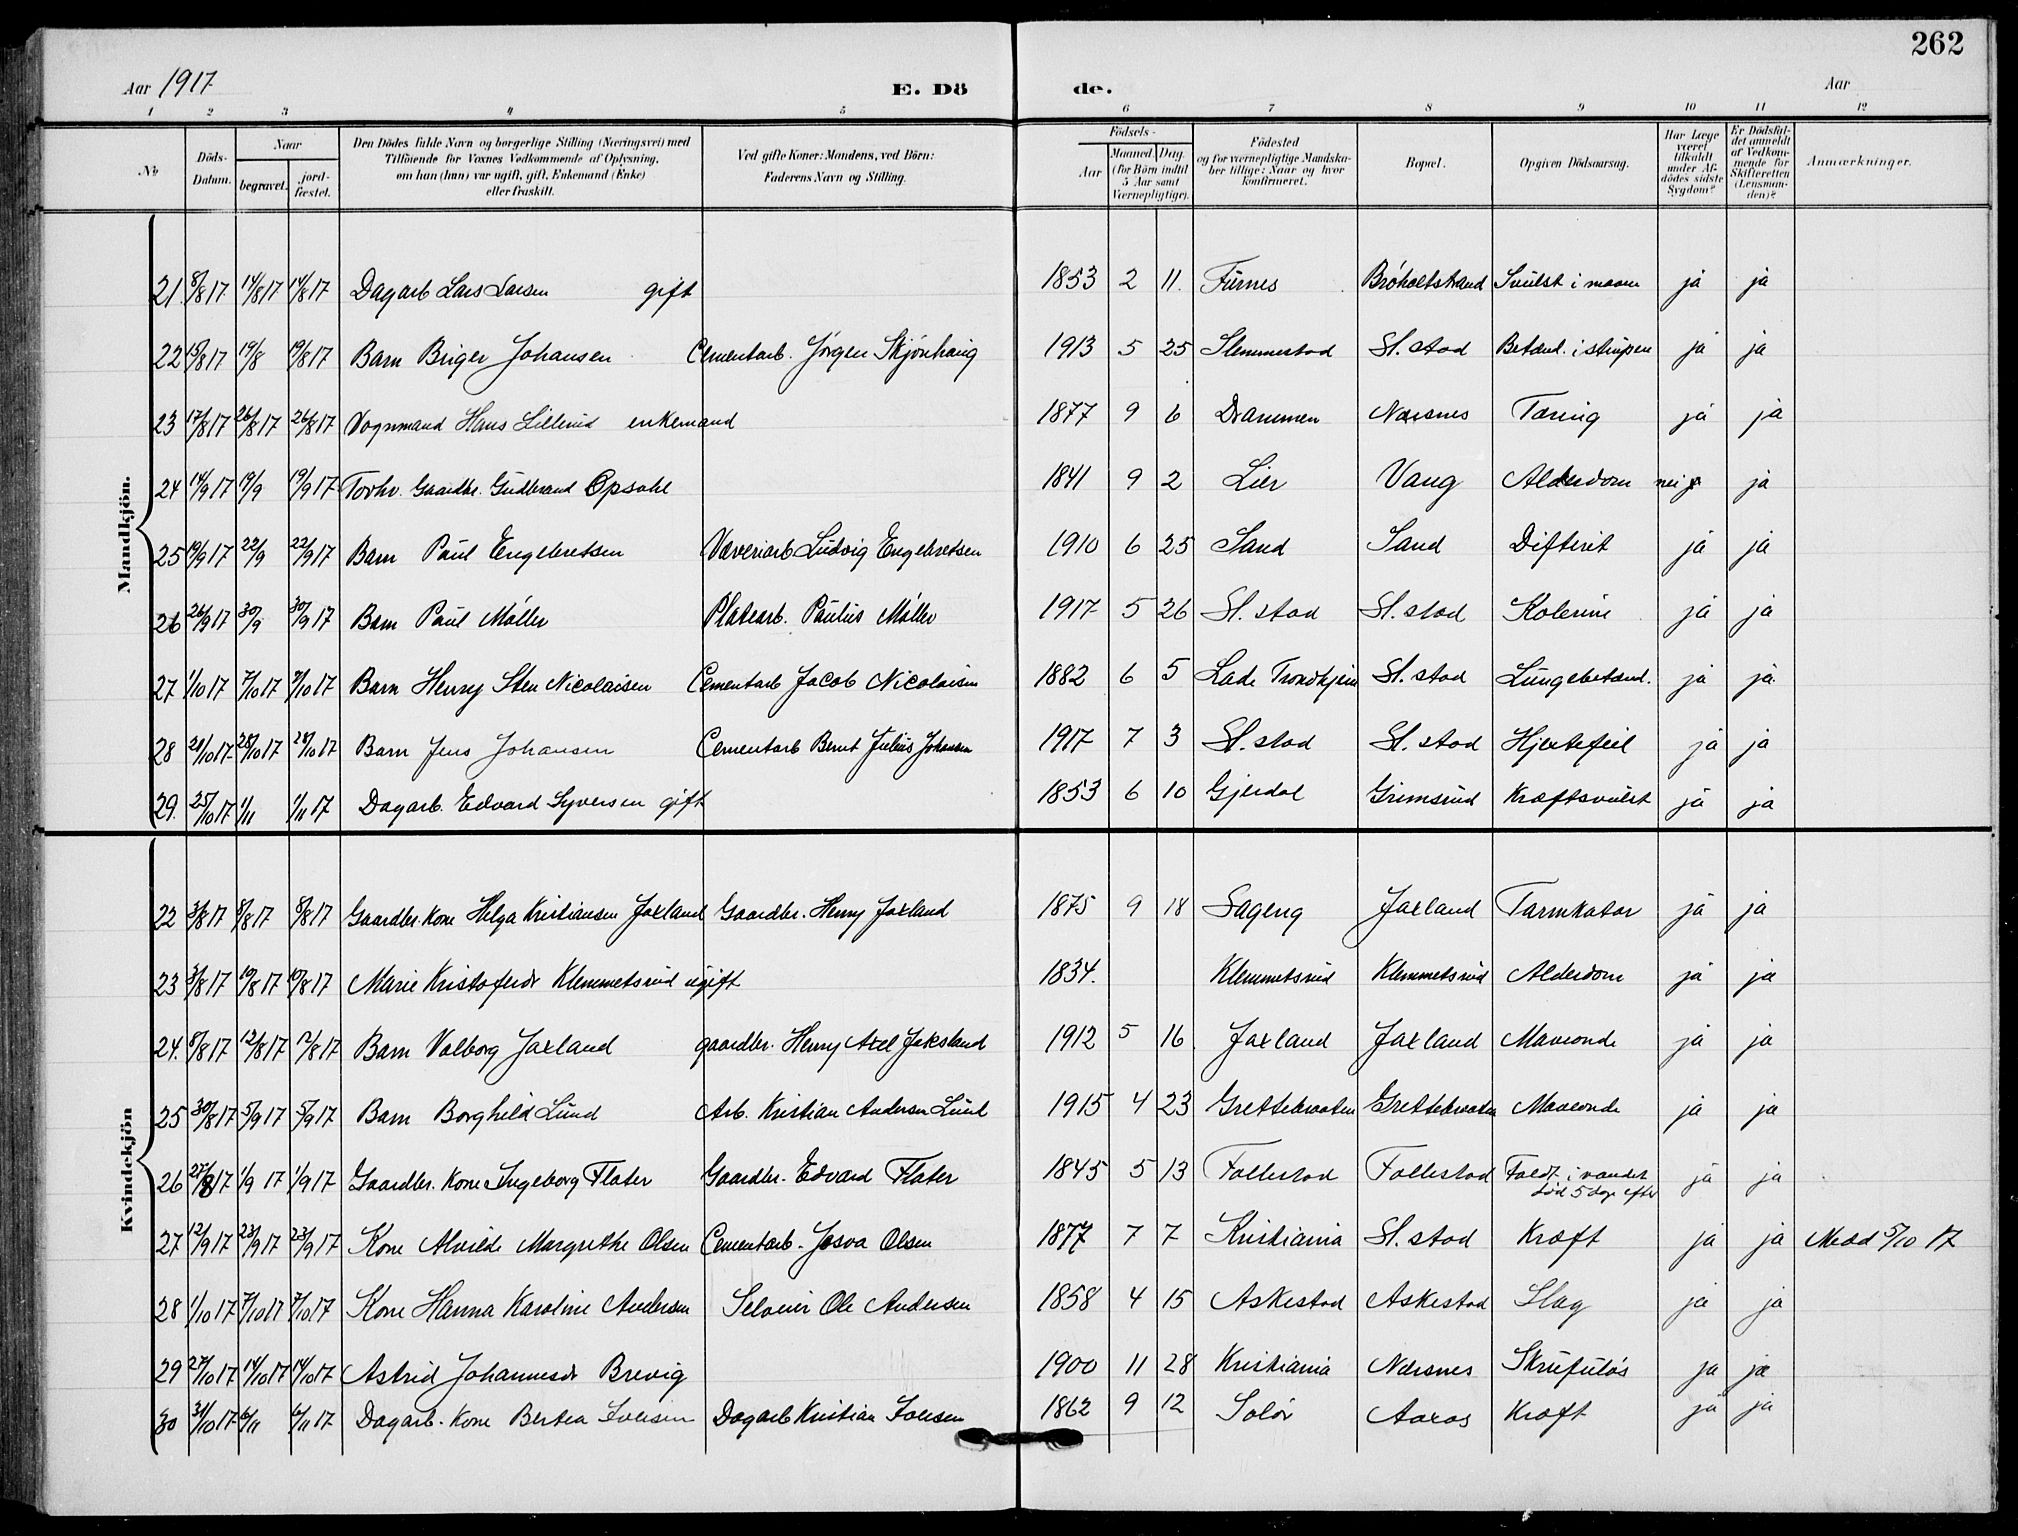 262
Aar 1917 E. Dö de. Aar
1 2 3 4 5 6 7 8 9 10 11 12
No
Döds-Datum.
Naar
begravet.
jord-fæstet.
Den Dödes fulde Navn og borgerlige Stilling (Næringsvei) med
Tilföiende for Voxnes Vedkommende af Oplysning,
om han (hun) var ugift, gift, Enkemand (Enke)
eller fraskilt.
Ved gifte Koner: Mandens, ved Börn:
Faderens Navn og Stilling.
Födsels-
Aar
Maaned. Dag.
(for Börn indtil
5 Aar samt
Værnepligtige).
Födested
og for værnepligtige Mandska-
ber tillige: Naar og hvor
konfirmeret.
Bopæl.
Opgiven Dödsaarsag.
Har Læge
været
tilkaldt
under Af-
dödes sidste
Sygdom?
Er Dödsfal-
det anmeldt
af Vedkom-
mende for
Skifteretten
(Lensman-
den)?
Anmærkninger.
Mandkjön.
21. 8/8 17 14/8 17 14/8 17 Dagarb Lars Larsen gift 1853 2 11. Furnes Bröholtstrand Svulst i maven ja ja
22 15/8 17 19/8 19/8 17 Barn Briger Johansen Cementarb. Jörgen Skjönhaug 1913 5 25 Slemmestad Sl. stad Betænd. i strupen ja ja
23 17/8 17 26/8 17 26/8 17 Vognmand Hans Lillerud enkemand 1877 9 6 Drammen Nærsnes Tæring ja ja
24 14/9 17 19/9 19/9 17 Forhv. Gaardbr. Gudbrand Opsahl 1841 9 2 Lier Vang Alderdom nei ja
25 19/9 17 22/9 22/9 17 Barn Paul Engebretsen Væveriarb Ludvig Engebretsen 1910 6 25 Sand Sand Difterit ja ja
26 26/9 17 30/9 30/9 17 Barn Paul Möller Platearb. Paulus Möller 1917 5 26 Sl. stad Sl. stad Kolerine ja ja
27 1/10 17 7/10 17 7/10 17 Barn Henry Sten Nicolaisen Cementarb Jacob Nicolaisen 1882 6 5 Lade Trondhjem Sl. stad Lungebetænd. ja ja
28 21/10 17 28/10 17 28/10 17 Barn Jens Johansen Cementarb Bernt Julius Johansen 1917 7 3 Sl. stad Sl. stad Hjertefeil ja ja
29. 25/10 17 1/11 1/11 17 Dagarb. Edvard Syversen gift 1853 6 10 Gjerdal Grimsrud Kræftsvulst ja ja
Kvindekjön
22 3/8 17 8/8 17 8/8 17 Gaardbr. kone Helga Kristiansen Jaxland Gaardbr. Henry Jaxland 1875 9 18 Sageng Jaxland Tarmkatar ja ja
23 3/8 17 10/8 17 10/8 17 Marie Kristofersdr Klemmetsrud ugift 1834. Klemmetsrud Klemmetsrud Alderdom ja ja
24. 8/8 17 12/8 17 12/8 17 Barn Valborg Jaxland gaardbr. Henry Axel Jaksland 1912 5 16 Jaxland Jaxland Maveonde ja ja
25 30/8 17 5/9 17 5/9 17 Barn Borghild Lund Arb. Kristian Andersen Lund 1915 4 23 Grettebraaten Grettebraaten Maveonde ja ja
26 27/8 17 1/9 17 1/9 17 Gaardbr. Kone Ingeborg Flater Gaardbr. Edvard Flater 1845 5 13 Follestad Follestad Faldt i vandet
död 5 dage efter ja ja
27 12/9 17 23/9 17 23/9 17 Kone Alvilde Margrethe Olsen Cementarb. Josva Olsen 1877 7 7 Kristiania Sl. stad Kræft ja ja Medd 5/10 17
28 1/10 17 7/10 17 7/10 17 Kone Hanna Karoline Andersen Selveier Ole Andersen 1858 4 15 Askestad Askestad Slag ja ja
29 27/10 17 14/10 17 14/10 17 Astrid Johannesdr Brevig 1900 11 28 Kristiania Nærsnes Skrufulös ja ja
30 31/10 17 6/11 6/11 17 Dagarb. Kone Bertea Iversen Dagarb Kristian Iversen 1862 9 12 Solör Aaros Kræft ja ja